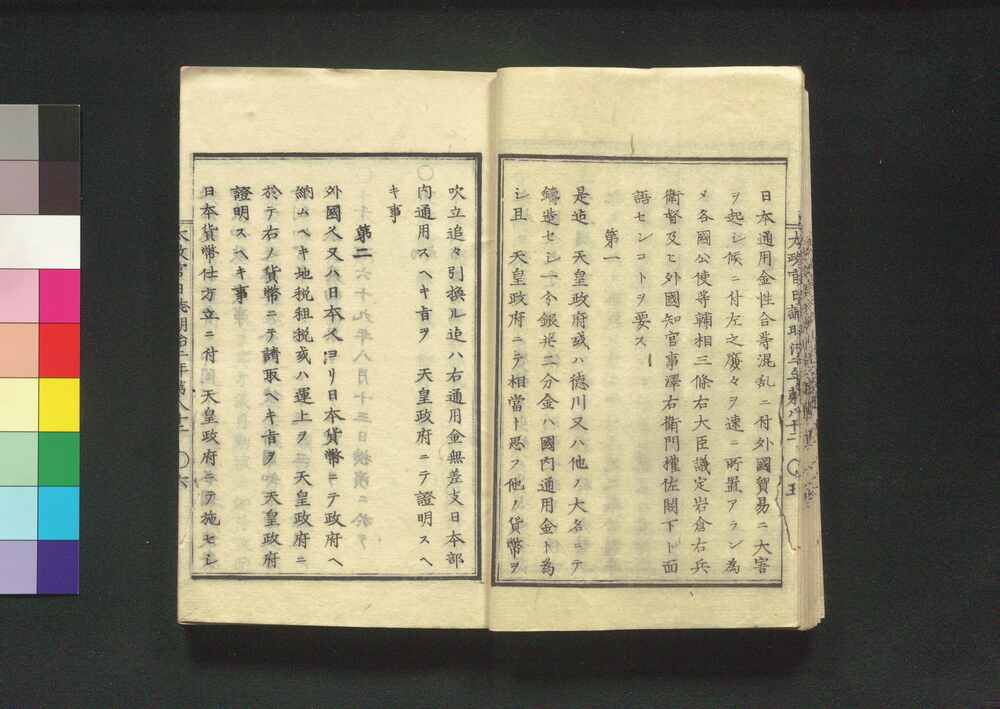 日本通用金性合等混乱ニ付外國貿易ニ大害
ヲ起シ候ニ付左之廉々ヲ速ニ所置アラン為
メ各國公使等輔相三條右大臣議定岩倉右兵
衛督及ヒ外國知官事澤右衛門權佐閣下ト面
語センコトヲ要ス
第一
是迠 天皇政府或ハ徳川又ハ他ノ大名ニテ
鑄造セシ一分銀并二分金ハ國内通用金ト為
シ且 天皇政府ニテ相當ト思フ他ノ貨幣ヲ
太政官日誌明治二年第八十二 〇五
吹立追々引換ル迠ハ右通用金無差支日本部
内通用スヘキ旨ヲ 天皇政府ニテ證明スヘ
キ事
第二
外國人又ハ日本人ヨリ日本貨幣ニテ政府ヘ
納ムヘキ地税租税或ハ運上ヲ 天皇政府ニ
於テ右ノ貨幣ニテ請取ヘキ旨ヲ 天皇政府
證明スヘキ事
日本貨幣仕方立ニ付 天皇政府ニテ施セシ
太政官日誌明治二年第八十二 〇六